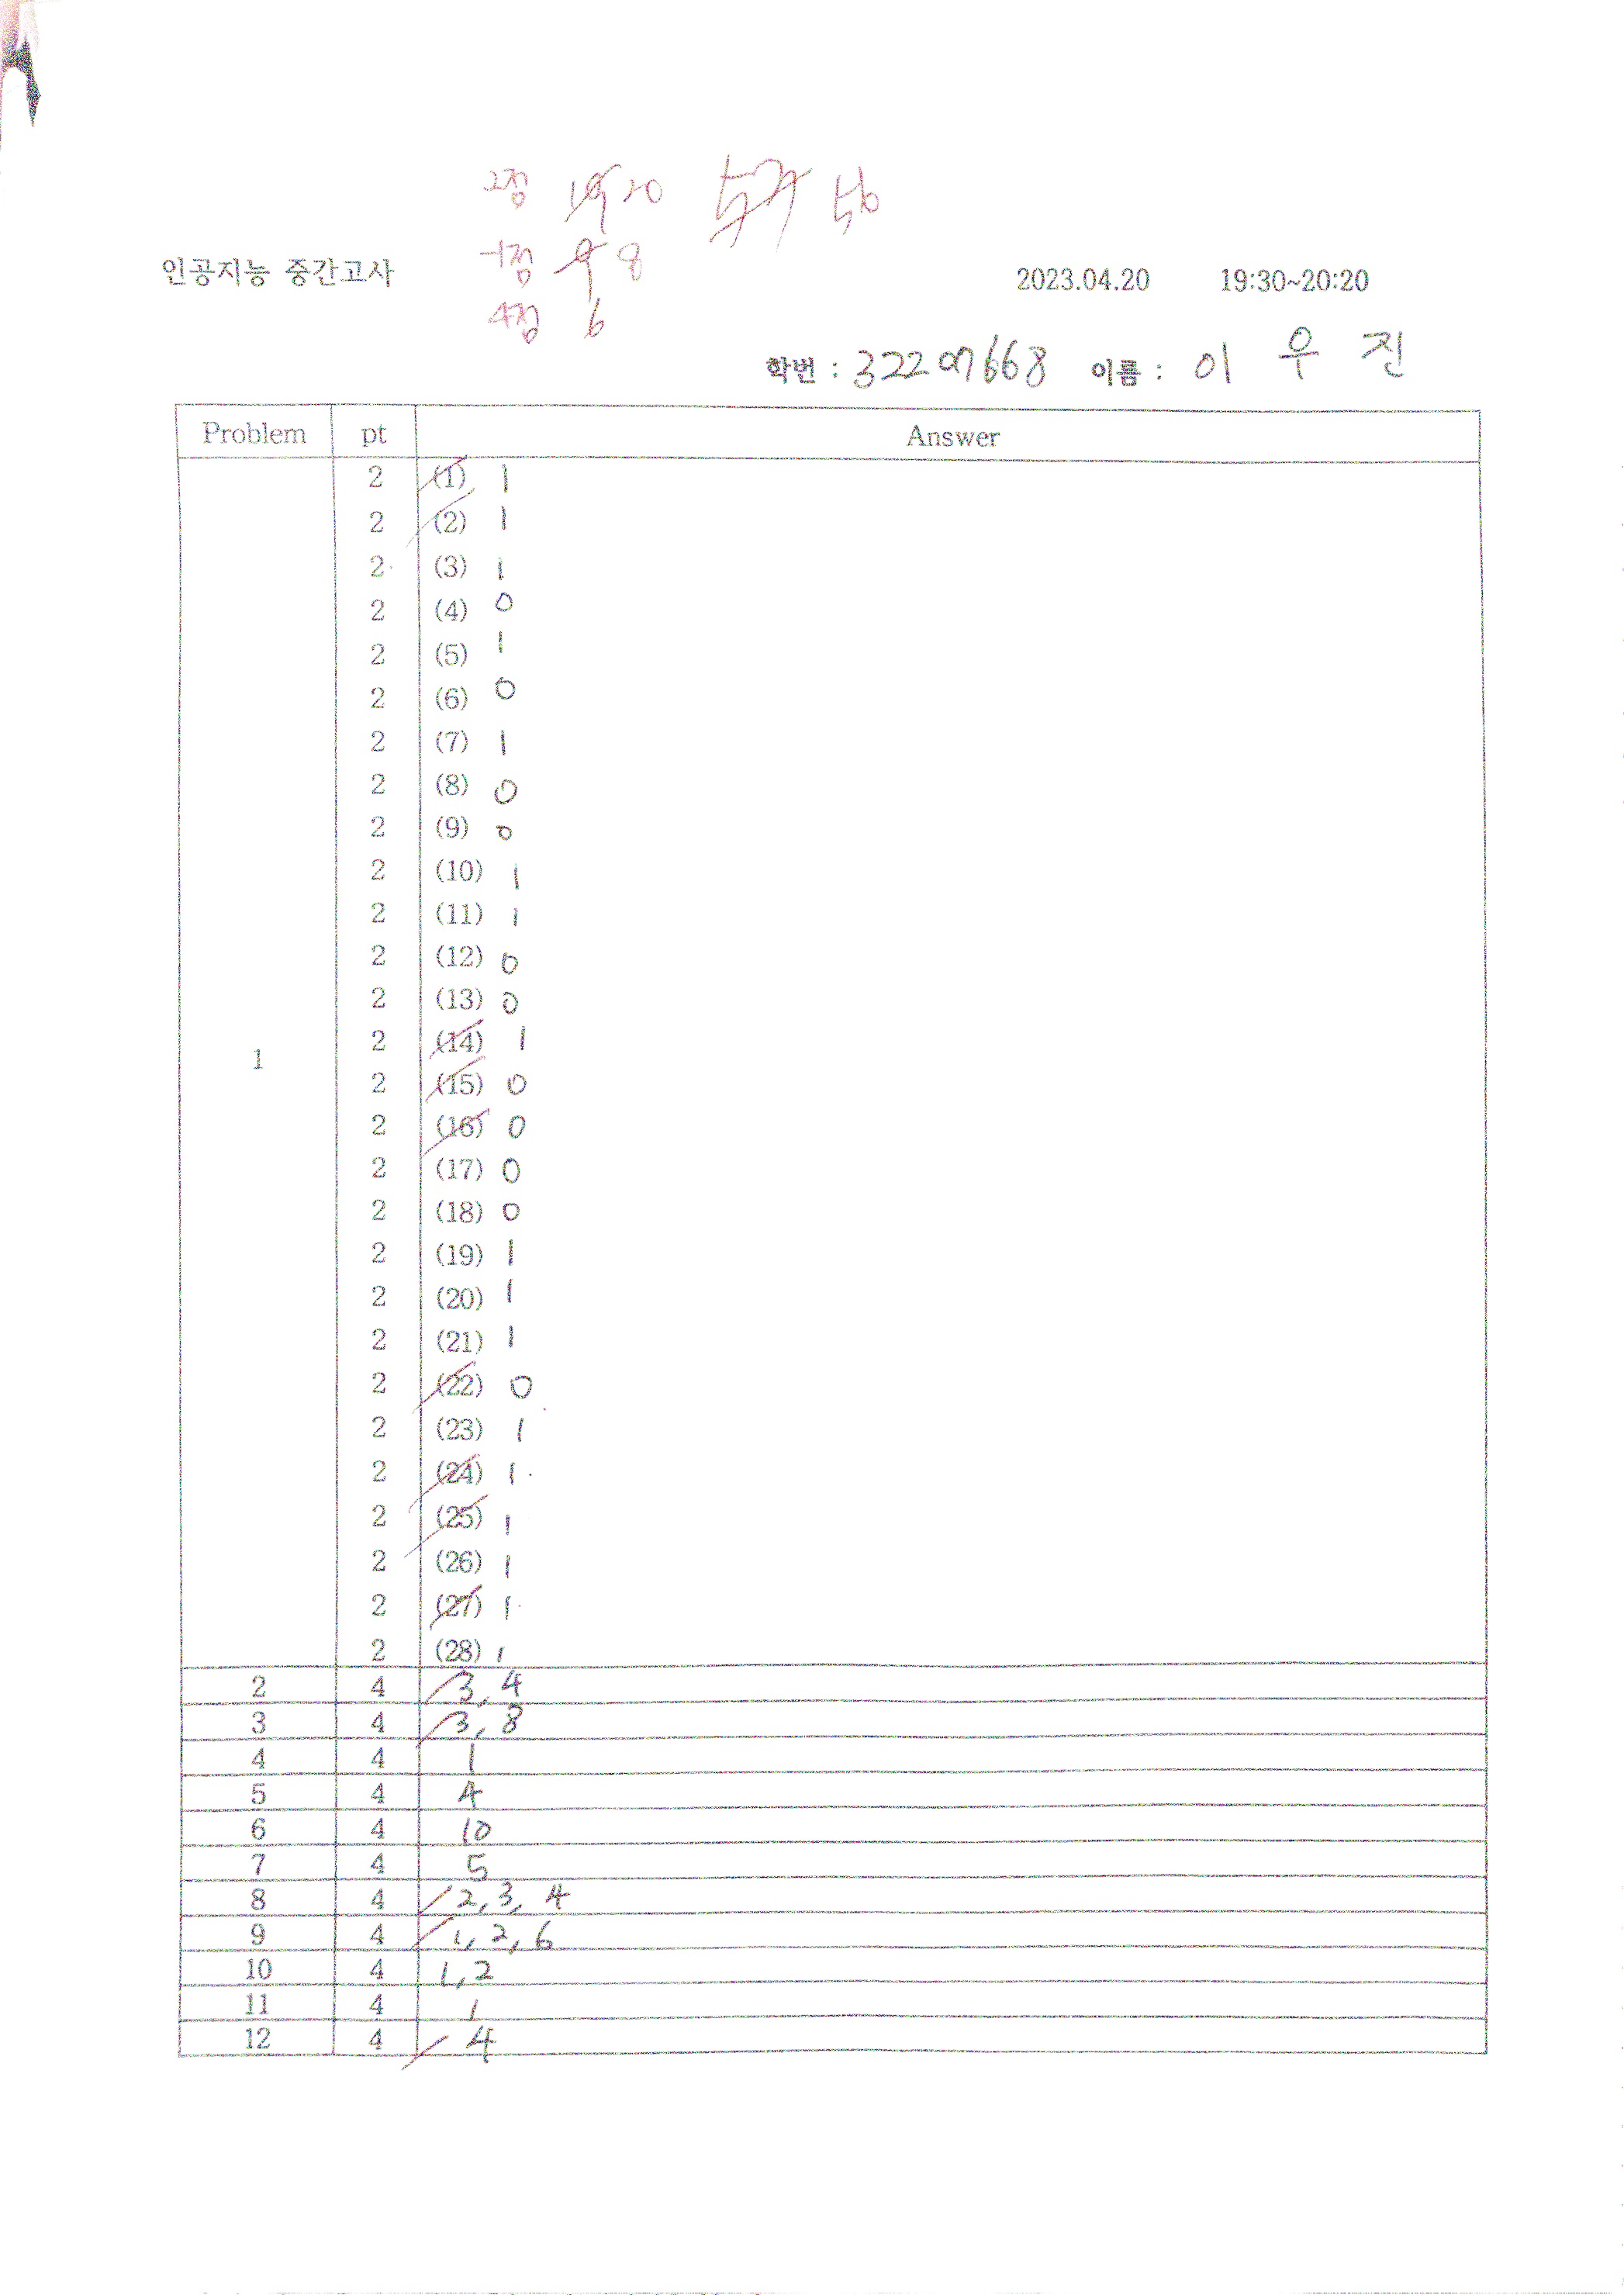 2점 19 20 57 56
-1점 9 8
4점 6
인공지능 중간고사 2023.04.20 19:30~20:20
학번 : 32207668 이름 : 이 우 진
Problem pt Answer
1
2 (1) 1
2 (2) 1
2 (3) 1
2 (4) 0
2 (5) 1
2 (6) 0
2 (7) 1
2 (8) 0
2 (9) 0
2 (10) 1
2 (11) 1
2 (12) 0
2 (13) 0
2 (14) 1
2 (15) 0
2 (16) 0
2 (17) 0
2 (18) 0
2 (19) 1
2 (20) 1
2 (21) 1
2 (22) 0
2 (23) 1
2 (24) 1
2 (25) 1
2 (26) 1
2 (27) 1
2 (28) 1
2 4 3, 4
3 4 3, 8
4 4 1
5 4 4
6 4 10
7 4 5
8 4 2, 3, 4
9 4 1, 2, 6
10 4 1, 2
11 4 1
12 4 4